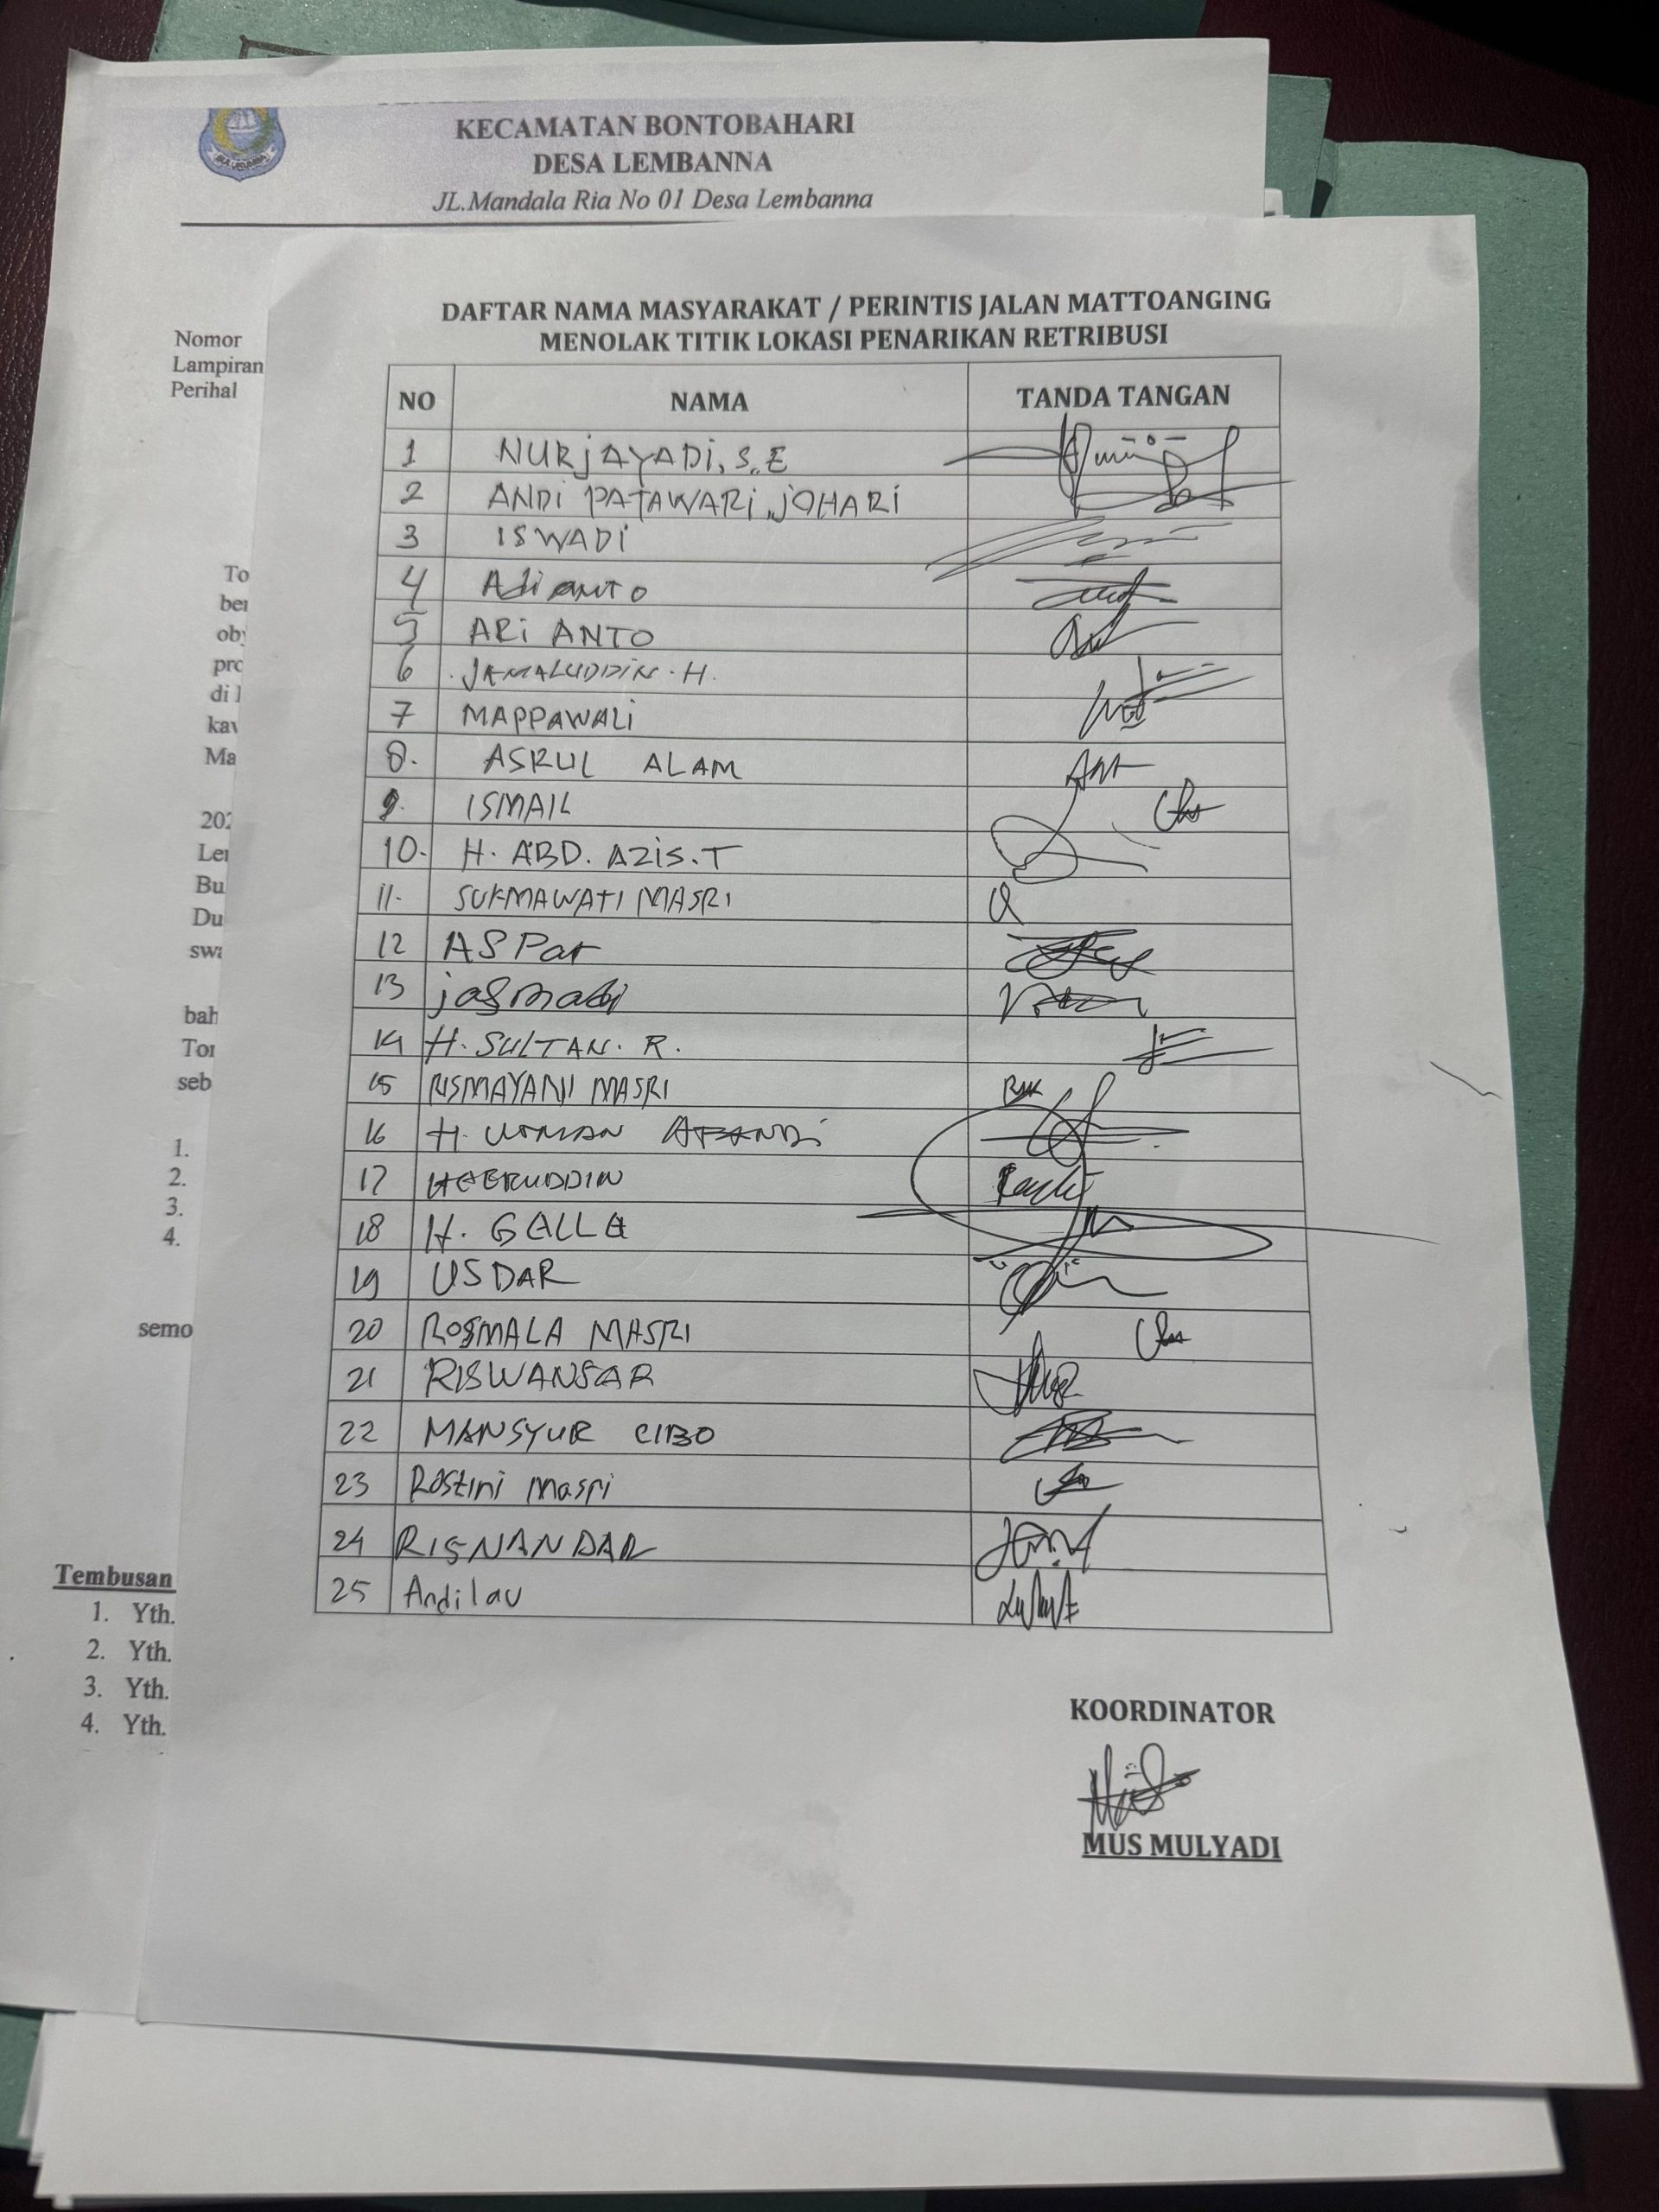 KECAMATAN BONTOBAHARI
DESA LEMBANNA
JL.Mandala Ria No 01 Desa Lembanna
Nomor
Lampiran
Perihal
To
ber
oby
pro
di l
kav
Ma
202
Ler
Bu
Du
swa
bah
Tor
seb
1.
2.
3.
4.
semo
Tembusan
1. Yth.
2. Yth.
3. Yth.
4. Yth.
DAFTAR NAMA MASYARAKAT / PERINTIS JALAN MATTOANGING
MENOLAK TITIK LOKASI PENARIKAN RETRIBUSI
NO NAMA TANDA TANGAN
1 NURjAYADi, S.E
2 ANDi PATAWARi JOHARi
3 ISWADi
4 Adianto
5 ARi ANTO
6 JAMALUDDiN. H.
7 MAPPAWALi
8. ASRUL ALAM
9. ISMAIL
10. H. ABD. AZiS.T
11. SUKMAWATI MASRI
12 ASPar
13
14 H. SULTAN. R.
15 RISMAYANI MASRI
16 H. USMAN AFANDi
17 HAERUDDIN
18 H. GALLA
19 USDAR
20 ROSMALA MASRI
21 RISWANSAR
22 MANSYUR CIBO
23 Rostini Masri
24 RISNANDAR
25 Andi lau
KOORDINATOR
MUS MULYADI